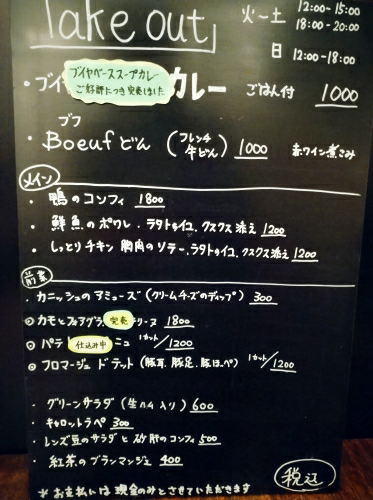 Take out
火〜土 12:00〜15:00
18:00〜20:00
日 12:00〜18:00
ブイヤベーススープカレー
ご好評につき完売しました
・ブイヤ カレー ごはん付 1000
ブフ
・Boeufどん (フレンチ牛どん) 1000 赤ワイン煮こみ
メイン
・鴨のコンフィ 1800
・鮮魚のポワレ、ラタトゥイユ、クスクス添え 1200
・しっとりチキン胸肉のソテー、ラタトゥイユ、クスクス添え 1200
前菜
・カニッシュのアミューズ(クリームチーズのディップ) 300
◎カモとフォアグラ 完売 テリーヌ 1800
◎パテ 仕込み中 ニュ 1カット/1200
◎フロマージュ ド テット (豚耳、豚足、豚ほっぺ) 1カット/1200
・グリーンサラダ(生ハム入り) 600
・キャロットラペ 300
・レンズ豆のサラダと砂肝のコンフィ 500
・紅茶のブランマンジェ 400
税込
※お支払いは現金のみとさせていただきます